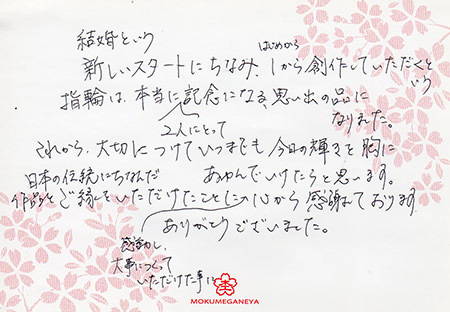 結婚という
はじめから
新しいスタートにちなみ、1から創作していただくと
いう
指輪は、本当に記念になる、思い出の品に
なりました。
2人にとって
これから、大切につけていつまでも 今日の輝きを胸に
日本の伝統にちなんだ あゆんでいけたらと思います。
作品とご縁をいただけたことに心から感謝しております
ありがとうございました。
感動し、
大事につくって
いただけた事に
MOKUMEGANEYA